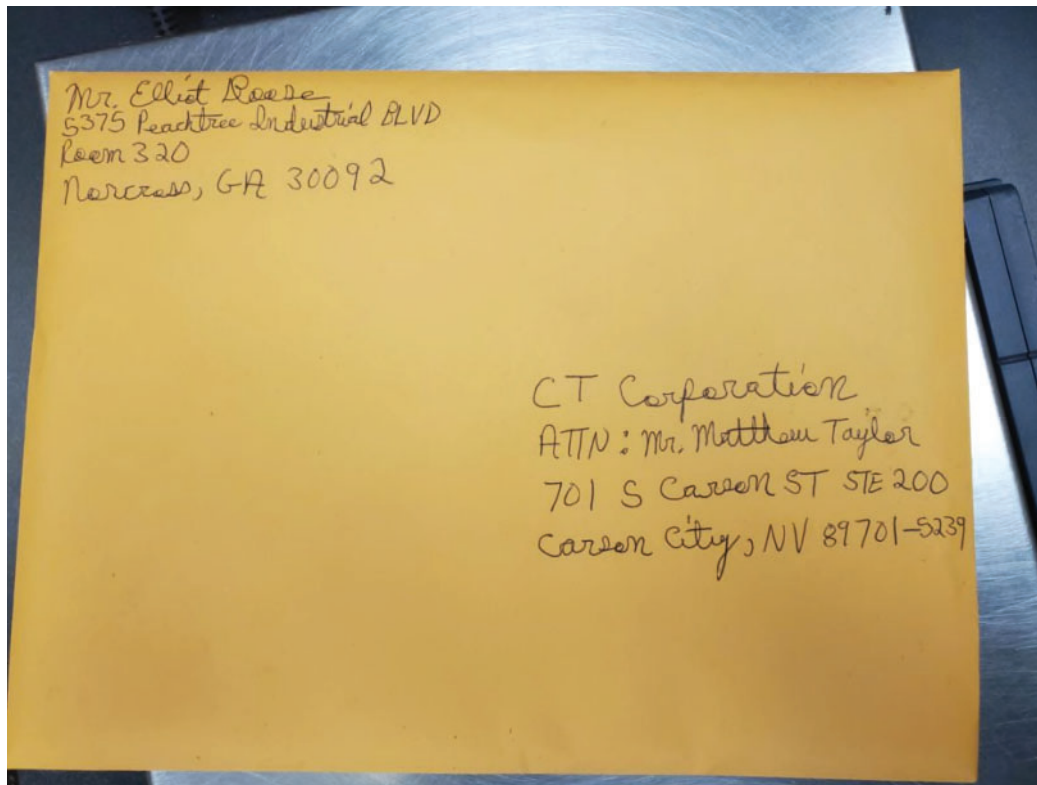 Mr. Elliot Roase
5375 Peachtree Industrial BLVD
Room 320
Norcross, GA 30092
CT Corporation
ATTN: Mr. Matthew Taylor
701 S Carson ST STE 200
Carson City, NV 89701-5239